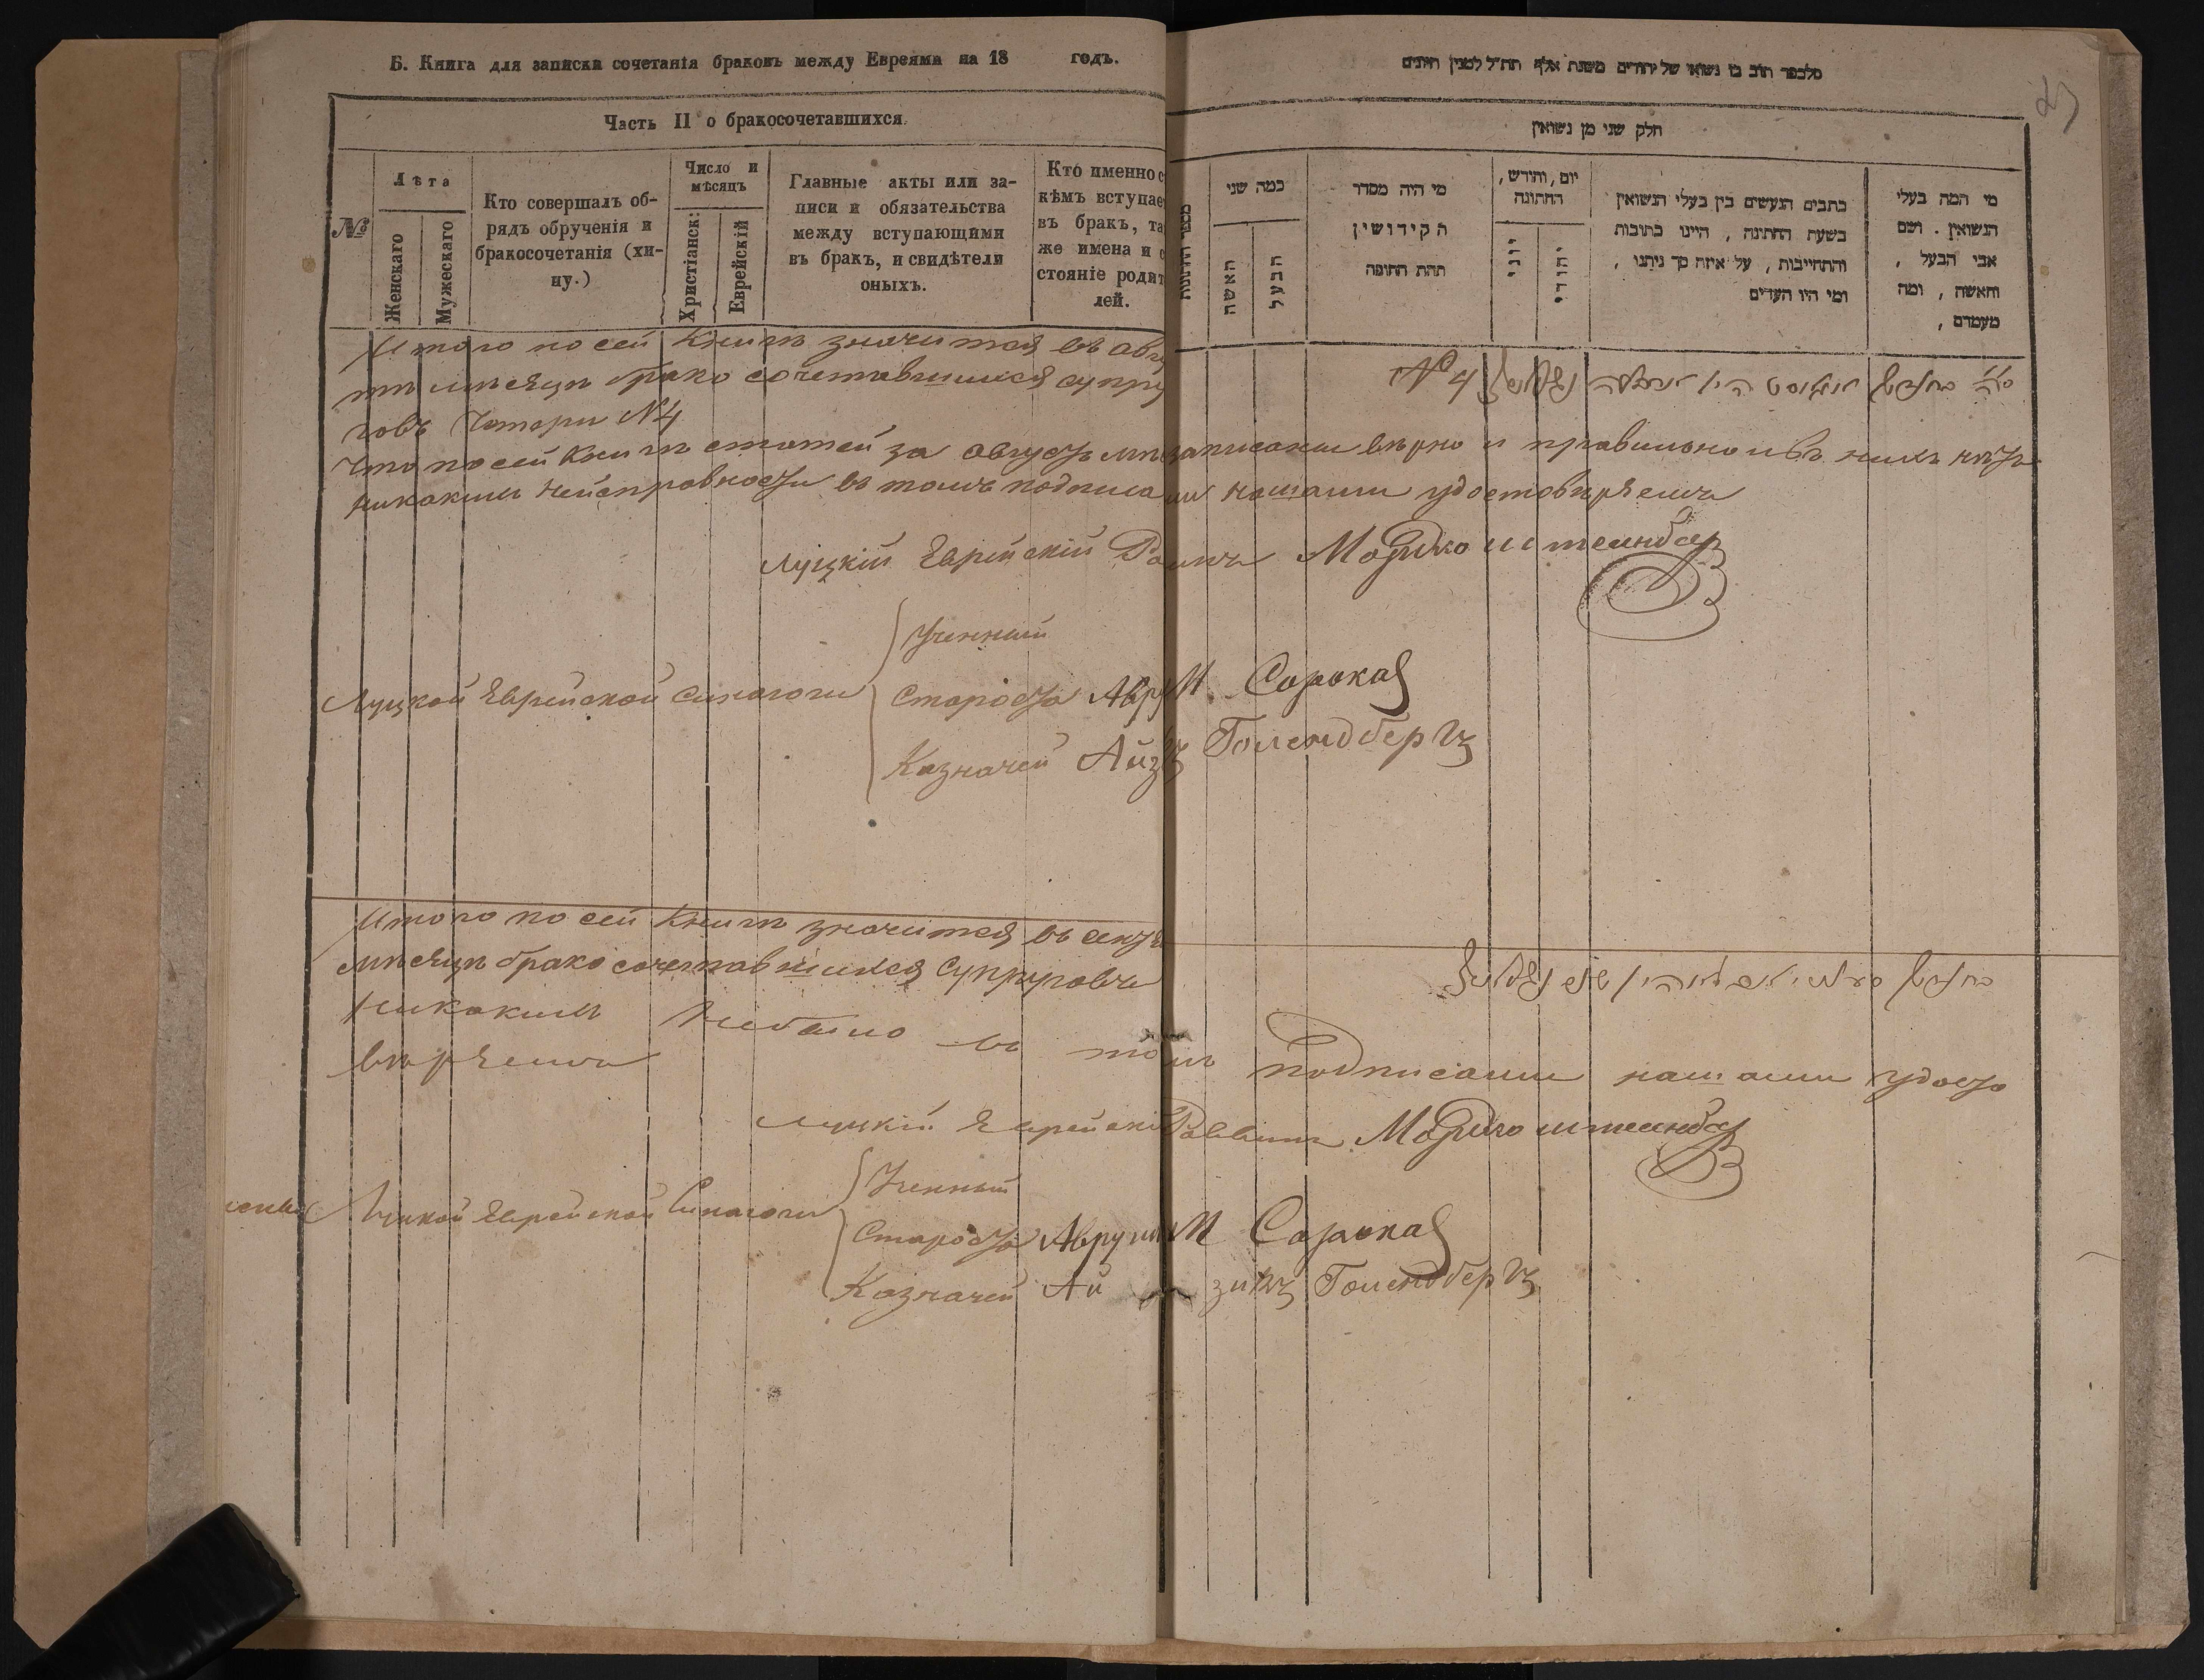 Б. Книга для записки сочетанія браковъ между Евреями на 18 годъ.
Часть II о бракосочетавшихся.
№
Лѣта
Женскаго
Мужескаго
Кто совершалъ об-
рядъ обрученія и
бракосочетанія (хи-
пу.)
Число и
мѣсяцъ
Христіанск:
Еврейскій
Главные акты или за-
писи и обязательства
между вступающими
въ бракъ, и свидѣтели
оныхъ.
Кто именно с
кѣмъ вступае
въ бракъ, та
же имена и с
стояніе родит
лей.
חלק שני מן נשואין
מי המה בעלי
הנשואין . ושם
אבי הבעל ,
והאשה , ומה
מעמדם ,
כתבים הנעשים בין בעלי הנשואין
בשעת החתונה , היינו כתובות
והתחייבות , על איזה סך ניתנו ,
ומי היו העדים
יום, וחודש,
החתונה
יהודי
יוני
מי היה מסדר
הקידושין
תחת החופה
כמה שני
הבעל
האשה
Итого по сей Книгѣ значится въ авгу
тѣ мѣсяцѣ брако сочетавшихся супру
говъ Четыри №4
№ 4
Что по сей Книгѣ статей за августъ мѣ записаны вѣрно и правильно и въ нихъ нѣтъ
никакихъ неисправности въ томъ подписа ми нашами удостовѣряемъ
Луцкій Еврейскій Равинъ Мордко Штейнбер
Луцкой Еврейской Синагоги
Ученный
Староста Аврум Сорока
Казначей Айзикъ Голендбергъ
Итого по сей Книгѣ значится въ сентя
мѣсяцѣ брако сочетавшихся Супруговъ
никакихъ небыло въ томъ подписами нашами удосто
вѣряемъ
Луцкій Еврейскій Раввинъ Мордко Штейнбер
Луцкой Еврейской Синагоги
Ученный
Староста Аврум Сорока
Казначей Айзикъ Голендбергъ